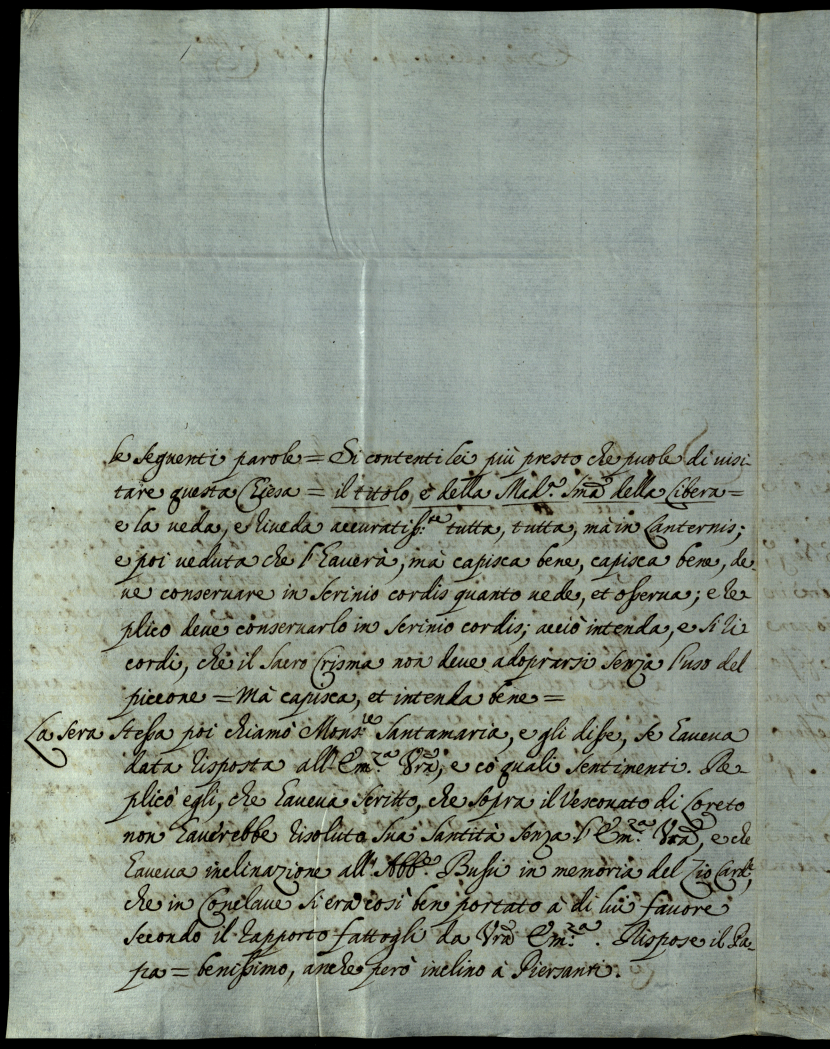 le seguenti parole = Si contenti lei più presto che puole di visi-
tare questa Chiesa = il titolo è della Mad.ª Sma della Libera =
e la veda, e riveda accuratiss.te tutta, tutta, mà in Lanternis;
e poi veduta che l'haverà, mà capisca bene, capisca bene, de-
ve conservare in scrinio cordis quanto vede, et osserva; e re-
plico deve conservarlo in scrinio cordis; acciò intenda, e si ri
cordi, che il Sacro Crisma non deve adoprarsi senza l'uso del
piccone = Mà capisca, et intenda bene =
La sera stessa poi chiamò Mons.re Santamaria, e gli disse, se haveva
data risposta all' Em.za Vra, e cò quali sentimenti. Re-
plicò egli, che haveva scritto, che sopra il Vescovato di Loreto
non haverebbe risoluto Sua Santità senza l'Em.za Vra, e che
haveva inclinazione all' Abb.e Bussi in memoria del Zio Card.le,
che in Conclave si era così ben portato à di lui favore
secondo il rapporto fattogli da Vra Em.za. Rispose il Pa-
pa = benissimo, anche però inclino à Piersanti.